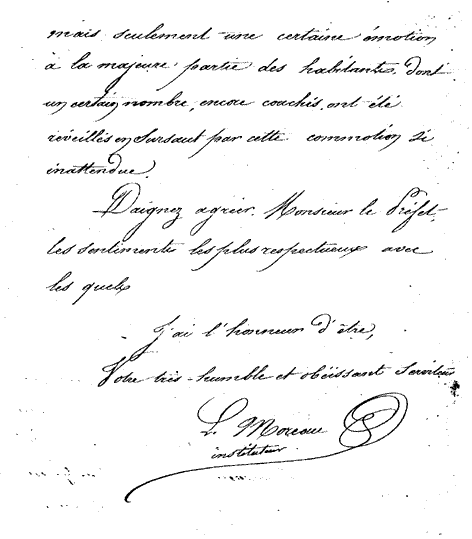 mais seulement une certaine émotion
à la majeure partie des habitants, dont
un certain nombre, encore couchés, ont été
réveillés en sursaut par cette commotion si
inattendue.
Daignez agréer, Monsieur le Préfet,
les sentiments les plus respectueux avec
les quels
J'ai l'honneur d'être,
Votre très-humble et obéissant Serviteur
L. Moreau
instituteur